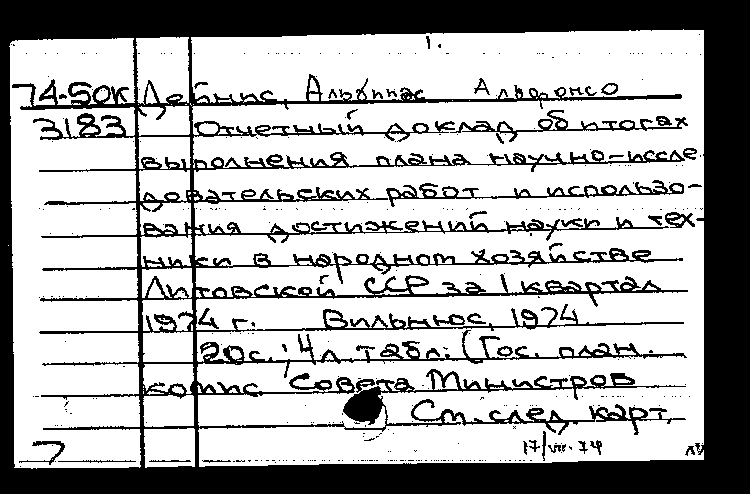 1.
74-50К Лейнис, Альбинас Альфонсо
3183 Отчетный доклад об итогах
выполнения плана научно-иссле
довательских работ и использо-
вания достижений науки и тех-
ники в народном хозяйстве
Литовской ССР за I квартал
1974 г. Вильнюс, 1974.
20с.; 4л. табл. (Гос. план.
комис. Совета Министров
См. след. карт.
17/VII-74